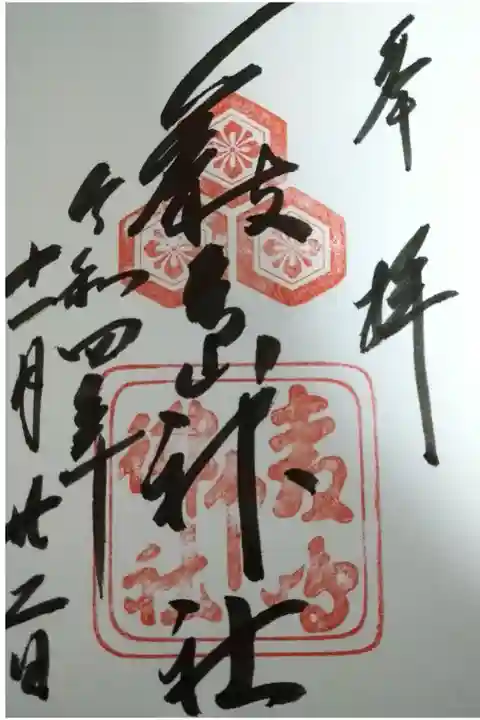 奉拝
厳島神社
令和四年
十一月廿二日
厳島
神社